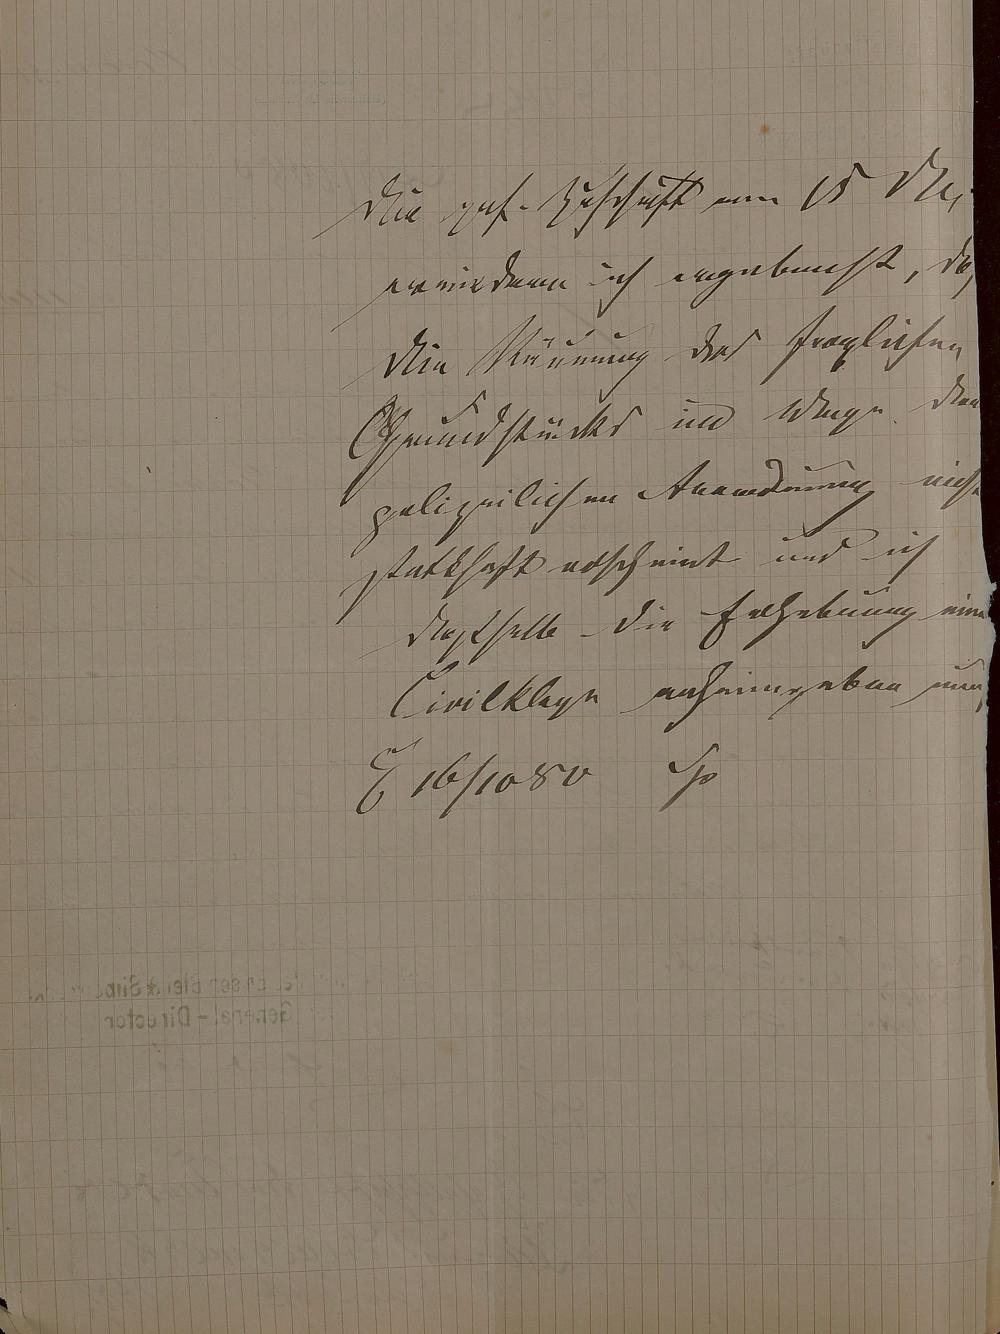 Die gef. Zuschrift vom 15 d Mts.
erwiedere ich ergebenst, daß
die Räumung des fraglichen
Grundstücks im Wege der
polizeilichen Anordnung nicht
statthaft erscheint und ich
deßhalb die Erhebung einer
Civilklage anheimgeben muß
E 16/10 80
General-Director